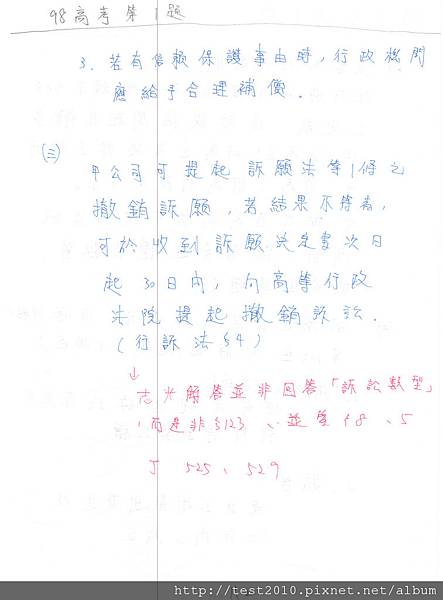 98高考第1題
3. 若有信賴保護事由時,行政機關
應給予合理補償.
(三)
甲公司可提起訴願法第1條之
撤銷訴願,若結果不符者,
可於收到訴願決定書次日
起30日內,向高等行政
法院提起撤銷訴訟.
(行訴法§4)
↓
志光解答並非回答「訴訟類型」
,而是非§123、並
J 525、529
http://test2010.pixnet.net/album